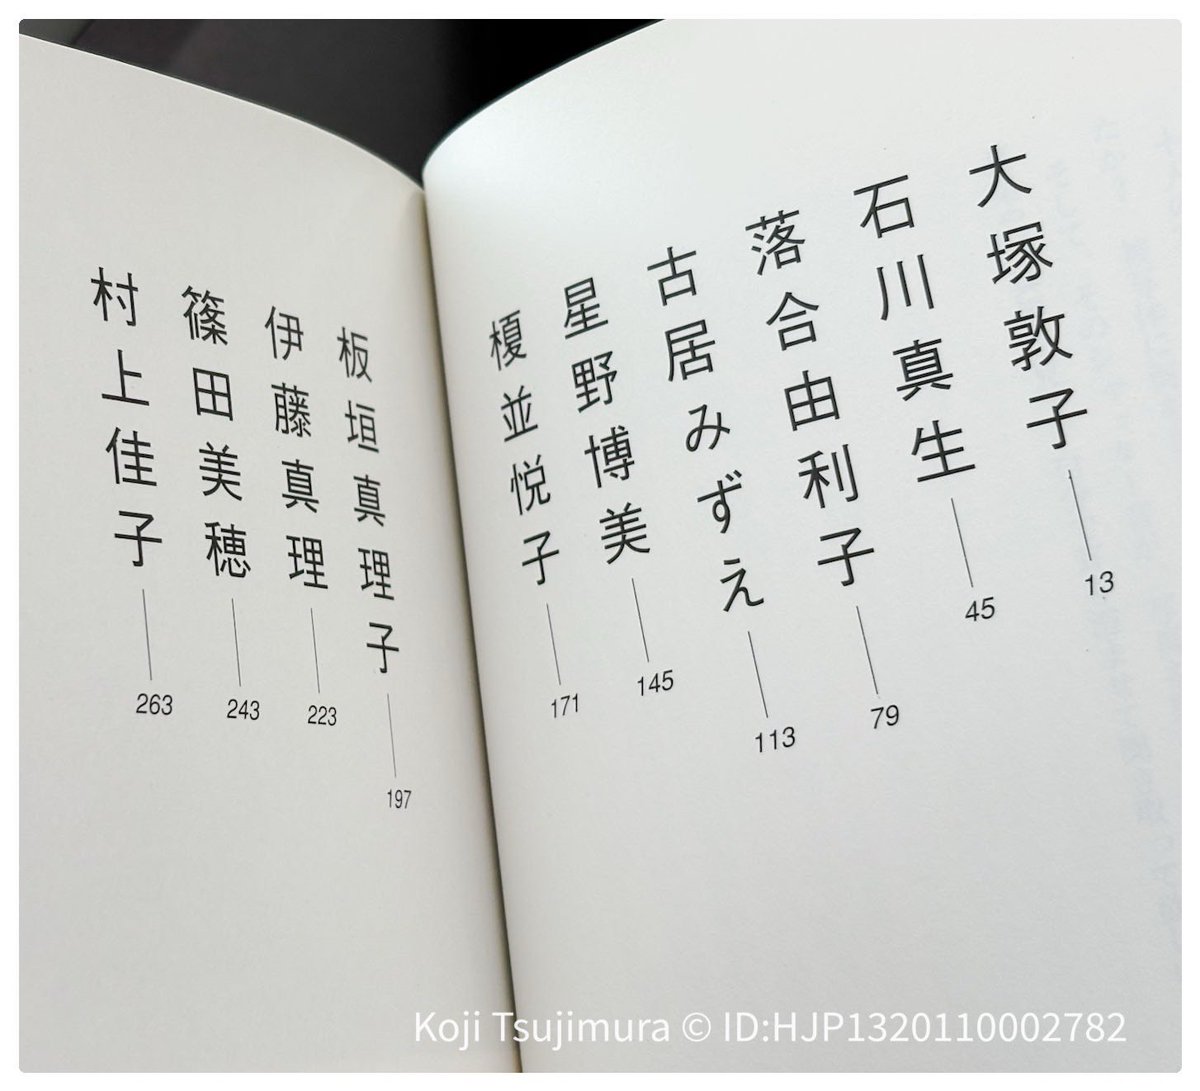 大塚敦子 13
石川真生 45
落合由利子 79
古居みずえ 113
星野博美 145
榎並悦子 171
板垣真理子 197
伊藤真理 223
篠田美穂 243
村上佳子 263
Koji Tsujimura © ID:HJP1320110002782